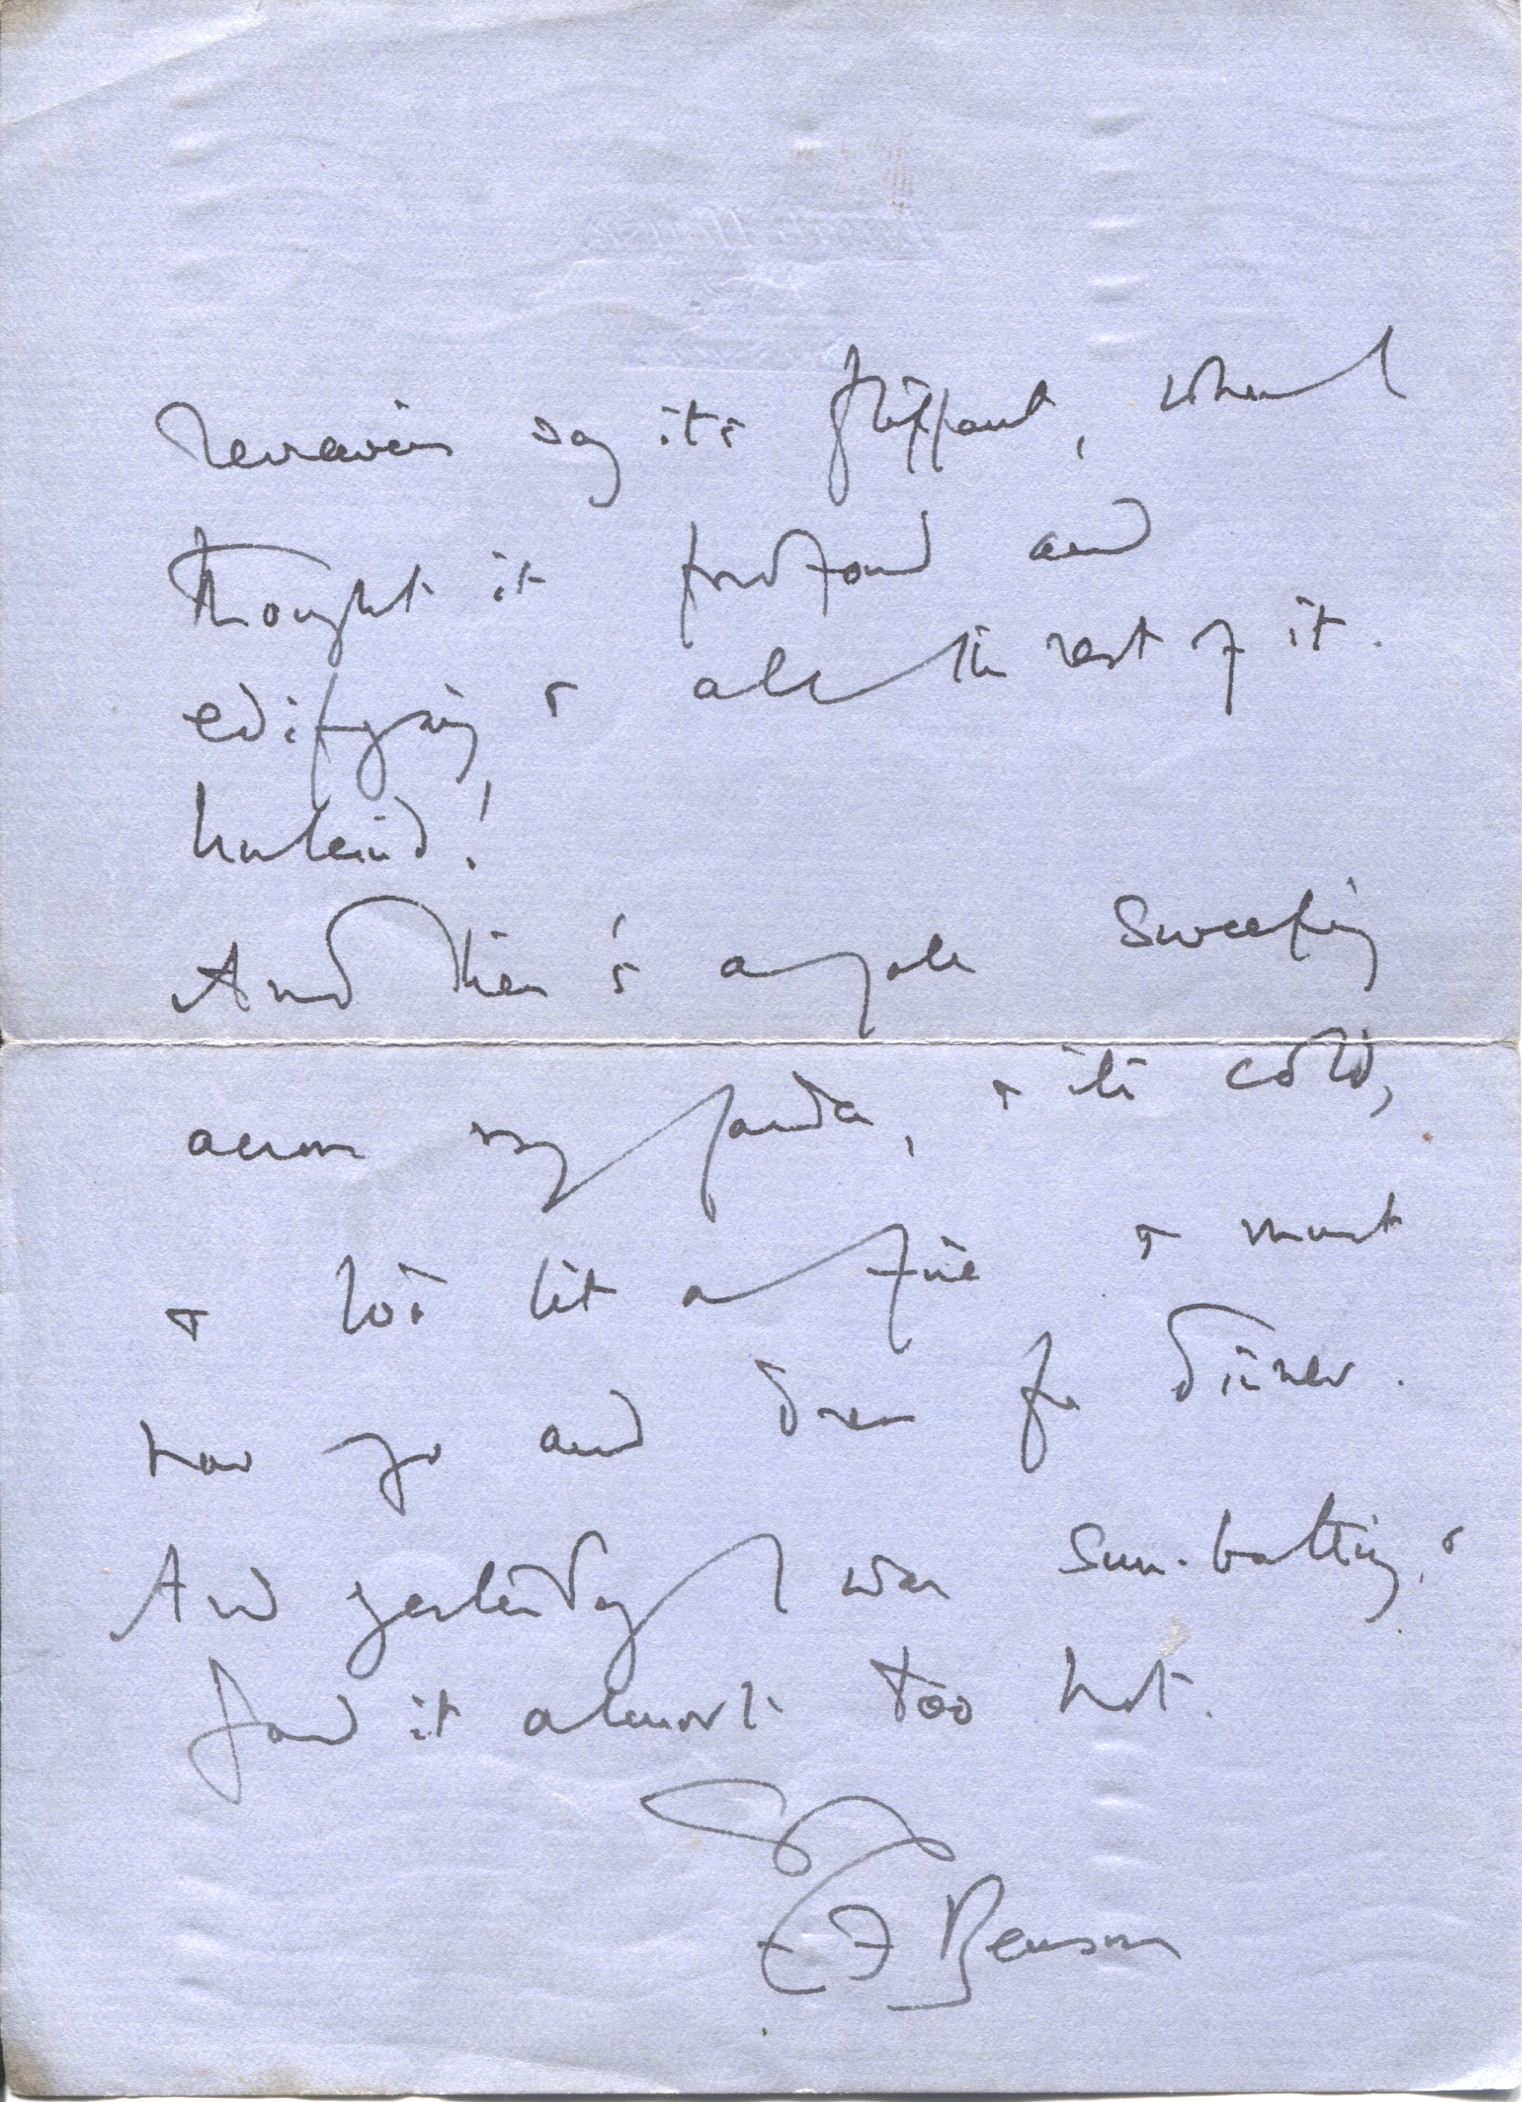 reviewers say it's flippant, when I
thought it profound and
edifying & all the rest of it.
Unkind!
And there's a gale sweeping
across my garden, & it's cold,
& I've lit a fire & must
now go and dress for dinner.
And yesterday I was sun-bathing, &
found it almost too hot.
E F Benson